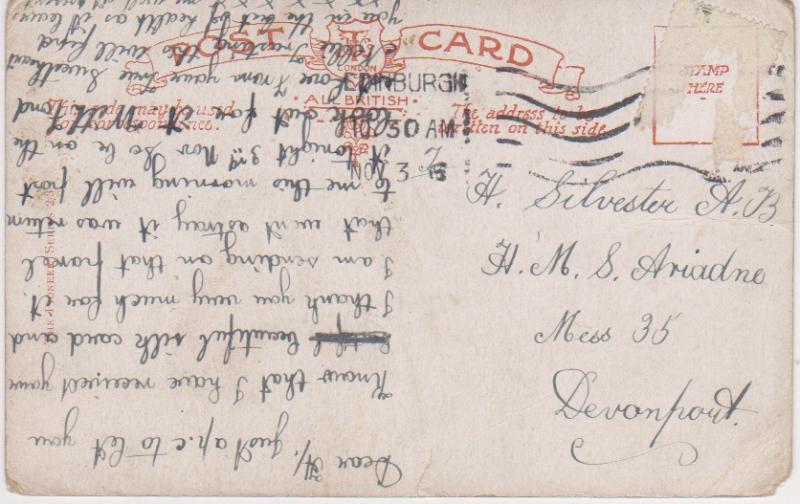 POST CARD
LONDON
ALL BRITISH
This side may be used
for correspondence.
The address to be
written on this side.
STAMP
HERE
EDINBURGH
10.30 AM
NOV 3
H. Silvester A.B
H. M. S. Ariadne
Mess 35
Devonport.
Dear H, just a p.c to let you
know that I have received your
beautiful silk card and
I thank you very much for it.
I am sending on that parcel
that went astray it was return
to me this morning will post
it tonight 3rd Nov so be on the
look out for it
love from your true Sweetheart
Trusting this will find
you in the best of health as it leaves